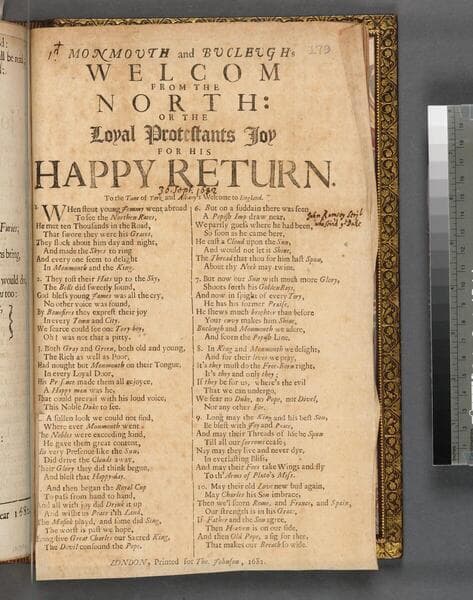 1d
MONMOUTH and BUCLEUGHs
179
WELCOM
FROM THE
NORTH:
OR THE
Loyal Protestants Joy
FOR HIS
HAPPY RETURN.
30. Sept. 1682
To the Tune of York and Albany's Welcome to England.
1. WHen stout young Jemmy went abroad
To see the Northern Races,
He met ten Thousands in the Road,
That swore they were his Graces,
They flock about him day and night,
And made the Skye to ring
And every one seem to delight
In Monmouth and the King.
2. They tost their Hats up to the Sky,
The Bells did sweetly sound,
God bless young James was all the cry,
No other voice was found,
By Bonefires they exprest their joy
In every Town and City.
We scarce could see one Tory-boy,
Oh! was not that a pitty.
3. Both Gray and Green, both old and young,
The Rich as well as Poor,
Had nought but Monmouth on their Tongue,
In every Loyal Door,
His Presence made them all rejoyce,
A Happy man was he,
That could prevail with his loud voice,
This Noble Duke to see.
A sullen look we could not find,
Where ever Monmouth went
The Nobles were exceeding kind,
He gave them great content,
His very Presence like the Sun,
Did drive the Clouds away,
Their Glory they did think begun,
And blest that Happy day.
And then began the Royal Cup
To pass from hand to hand,
And all with joy did Drink it up
And wisht us Peace i'th Land,
The Musick playd, and some did Sing,
The worst is past we hope,
Long live Great Charles our Sacred King,
The Devil confound the Pope.
6. But on a suddain there was seen
A Popish Imp draw near,
We partly guess where he had been,
So soon as he came here,
He cast a Cloud upon the Sun,
And would not let it Shine,
The Thread that thou for him hast Spun,
About thy Neck may twine.
7. But now our Sun with much more Glory,
Shoots forth his Golden Rays,
And now in spight of every Tory,
He has his former Praise,
He shews much brighter than before
Your envy makes him Shine,
Bucleugh and Monmouth we adore,
And scorn the Popish Line.
8. In King and Monmouth we delight,
And for their lives we pray,
It's they must do the Free-Born right,
It's they and only they;
If they be for us, where's the evil
That we can undergo,
We fear no Duke, no Pope, not Devil,
Nor any other Foe.
9. Long may the King and his best Son,
Be blest with Joy and Peace,
And may their Threads of life be Spun
Till all our sorrows cease;
Nay may they live and never dye,
In everlasting Bliss,
And may their Foes take Wings and fly
To th' Arms of Pluto's Miss.
10. May their old Love new bud again,
May Charles his Son imbrace,
Then we'l scorn Rome, and France, and Spain,
Our strength is in his Grace,
If Father and the Son agree,
Then Heaven is on our side,
And then Old Pope, a fig for thee,
That makes our Breach so wide.
LONDON, Printed for Tho. Johnson, 1682.